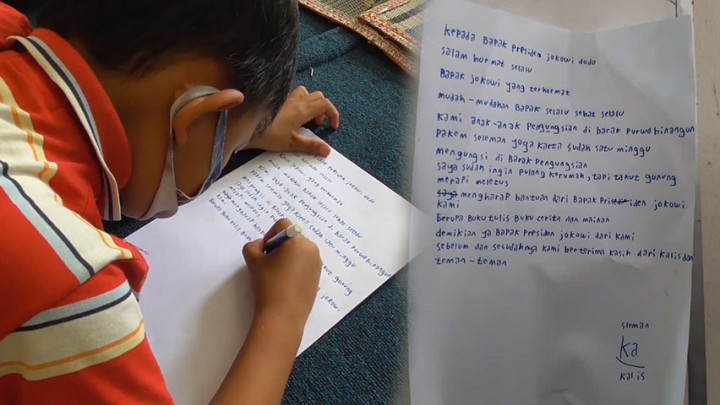 kepada Bapak Presiden jokowi dodo
salam hormat selalu
Bapak jokowi yang terhormat
mudah-mudahan Bapak selalu sehat selalu
kami anak-anak Pengungsian di barak Purwobinangun
pakem seleman yogya karta sudah satu minggu
mengungsi di Barak Pengungsian
saya sudah ingin pulang kerumah, tapi takut gunung
merapi meletus
saya mengharap bantuan dari Bapak Presiden jokowi
kami
berupa Buku tulis Buku cerita dan mainan
demikian ya Bapak Presiden jokowi dari kami
sebelum dan sesudahnya kami berterima kasih dari Kalis dan
teman-teman
sleman
ka
kalis